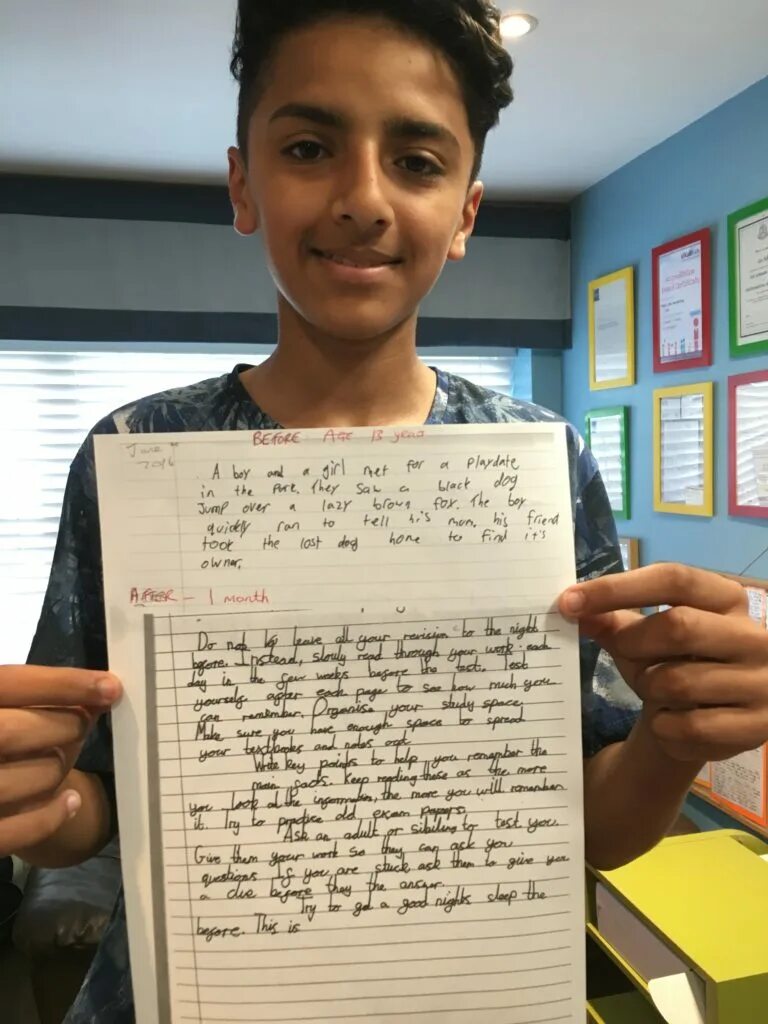 June
2016
BEFORE- AGE 13 years
A boy and a girl met for a playdate
in the Park. They saw a black dog
Jump over a lazy brown fox. The boy
quickly ran to tell his mum, his friend
took the lost dog home to find it's
owner.
AFTER - 1 month
Do not leave all your revision to the night
before. Instead, slowly read through your work each
day in the few weeks before the test. Test
yourself after each page to see how much you
can remember. Organise your study space.
Make sure you have enough space to spread
your textbooks and notes out
Write key points to help you remember the
main facts. Keep reading these as the more
you look at the information, the more you will remember
it. Try to practise old exam papers.
Ask an adult or sibiling to test you.
Give them your work so they can ask you
questions If you are stuck ask them to give you
a clue before they the answer.
Try to get a good nights sleep the
before. This is